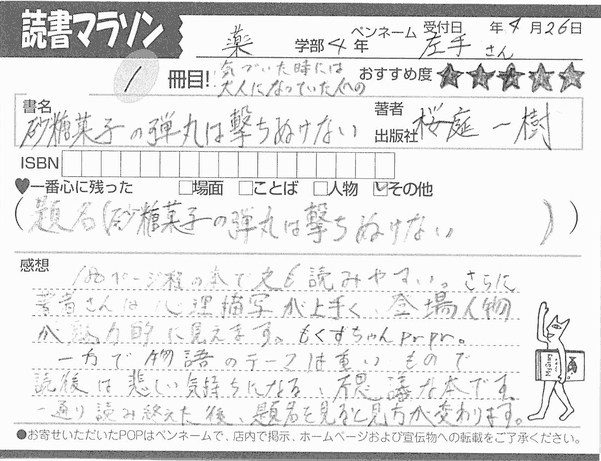 読書マラソン
ペンネーム 受付日 年4月26日
薬 学部4年 左手さん
1冊目! 気づいた時には大人になっていた人への おすすめ度 ★★★★★
書名 砂糖菓子の弾丸は撃ちぬけない 著者 出版社 桜庭一樹
ISBN
♥一番心に残った □場面 □ことば □人物 ☑その他
(題名(砂糖菓子の弾丸は撃ちぬけない))
感想
ページ程の本で文も読みやすい。さらに
著者さんは心理描写が上手く、登場人物
が魅力的に見えます。もくずちゃんprpr。
一方で物語のテーマは重いもので
読後は悲しい気持ちになる、不思議な本です。
一通り読み終えた後、題名を見ると見方が変わります。
●お寄せいただいたPOPはペンネームで、店内で掲示、ホームページおよび宣伝物への転載をご了承ください。